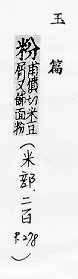 玉篇
粉甫憤切米豆
屑又飾面粉
(米部.二百 P.278)